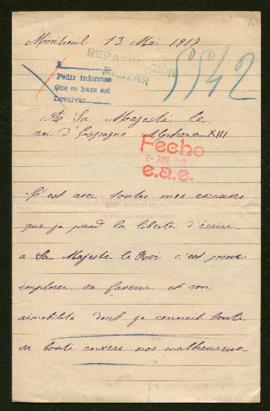 Montreuil 13 Mai 1917
REPARACIÓN
MILITAR
5542
A
Pedir informes
Que se hace así
Devolver
A Sa Majesté le
roi d'Espagne Alphonse XIII
Fecho
1917
e.a.e.
C'est avec toutes mes excuses
que je prend la liberté d'écrire
a Sa Majesté le Roi c'est pour
implorer sa faveur et son
aimabilité dont je connait toute
sa bonté envers nos malheureux